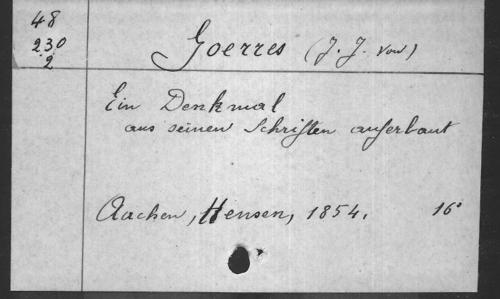 48
230
2
Goerres (J. J. von)
Ein Denkmal
aus seinen Schriften auferbaut
Aachen, Hensen, 1854. 16°